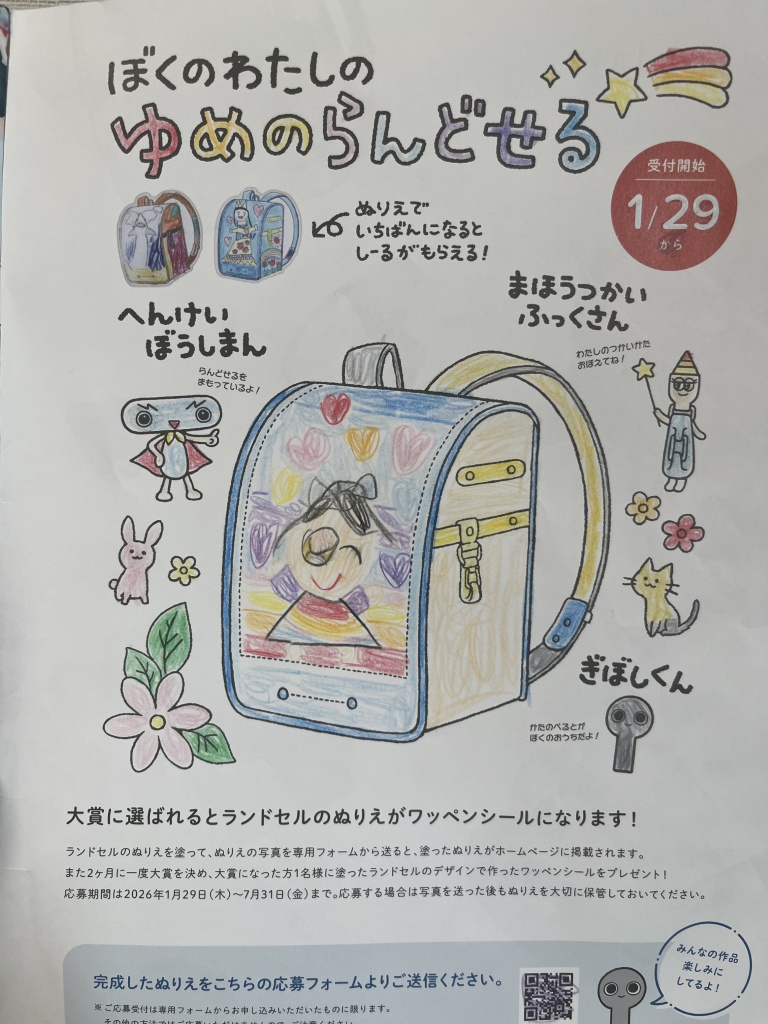 ぼくのわたしの
ゆめのらんどせる
受付開始
1/29
から
ぬりえで
いちばんになると
しーるがもらえる!
へんけい
ぼうしまん
らんどせるを
まもっているよ!
まほうつかい
ふっくさん
わたしのつかいかた
おぼえてね!
ぎぼしくん
かたのべるとが
ぼくのおうちだよ!
大賞に選ばれるとランドセルのぬりえがワッペンシールになります!
ランドセルのぬりえを塗って、ぬりえの写真を専用フォームから送ると、塗ったぬりえがホームページに掲載されます。
また2ヶ月に一度大賞を決め、大賞になった方1名様に塗ったランドセルのデザインで作ったワッペンシールをプレゼント!
応募期間は2026年1月29日(木)〜7月31日(金)まで。応募する場合は写真を送った後もぬりえを大切に保管しておいてください。
みんなの作品
楽しみに
してるよ!
完成したぬりえをこちらの応募フォームよりご送信ください。
※ご応募受付は専用フォームからお申し込みいただいたものに限ります。